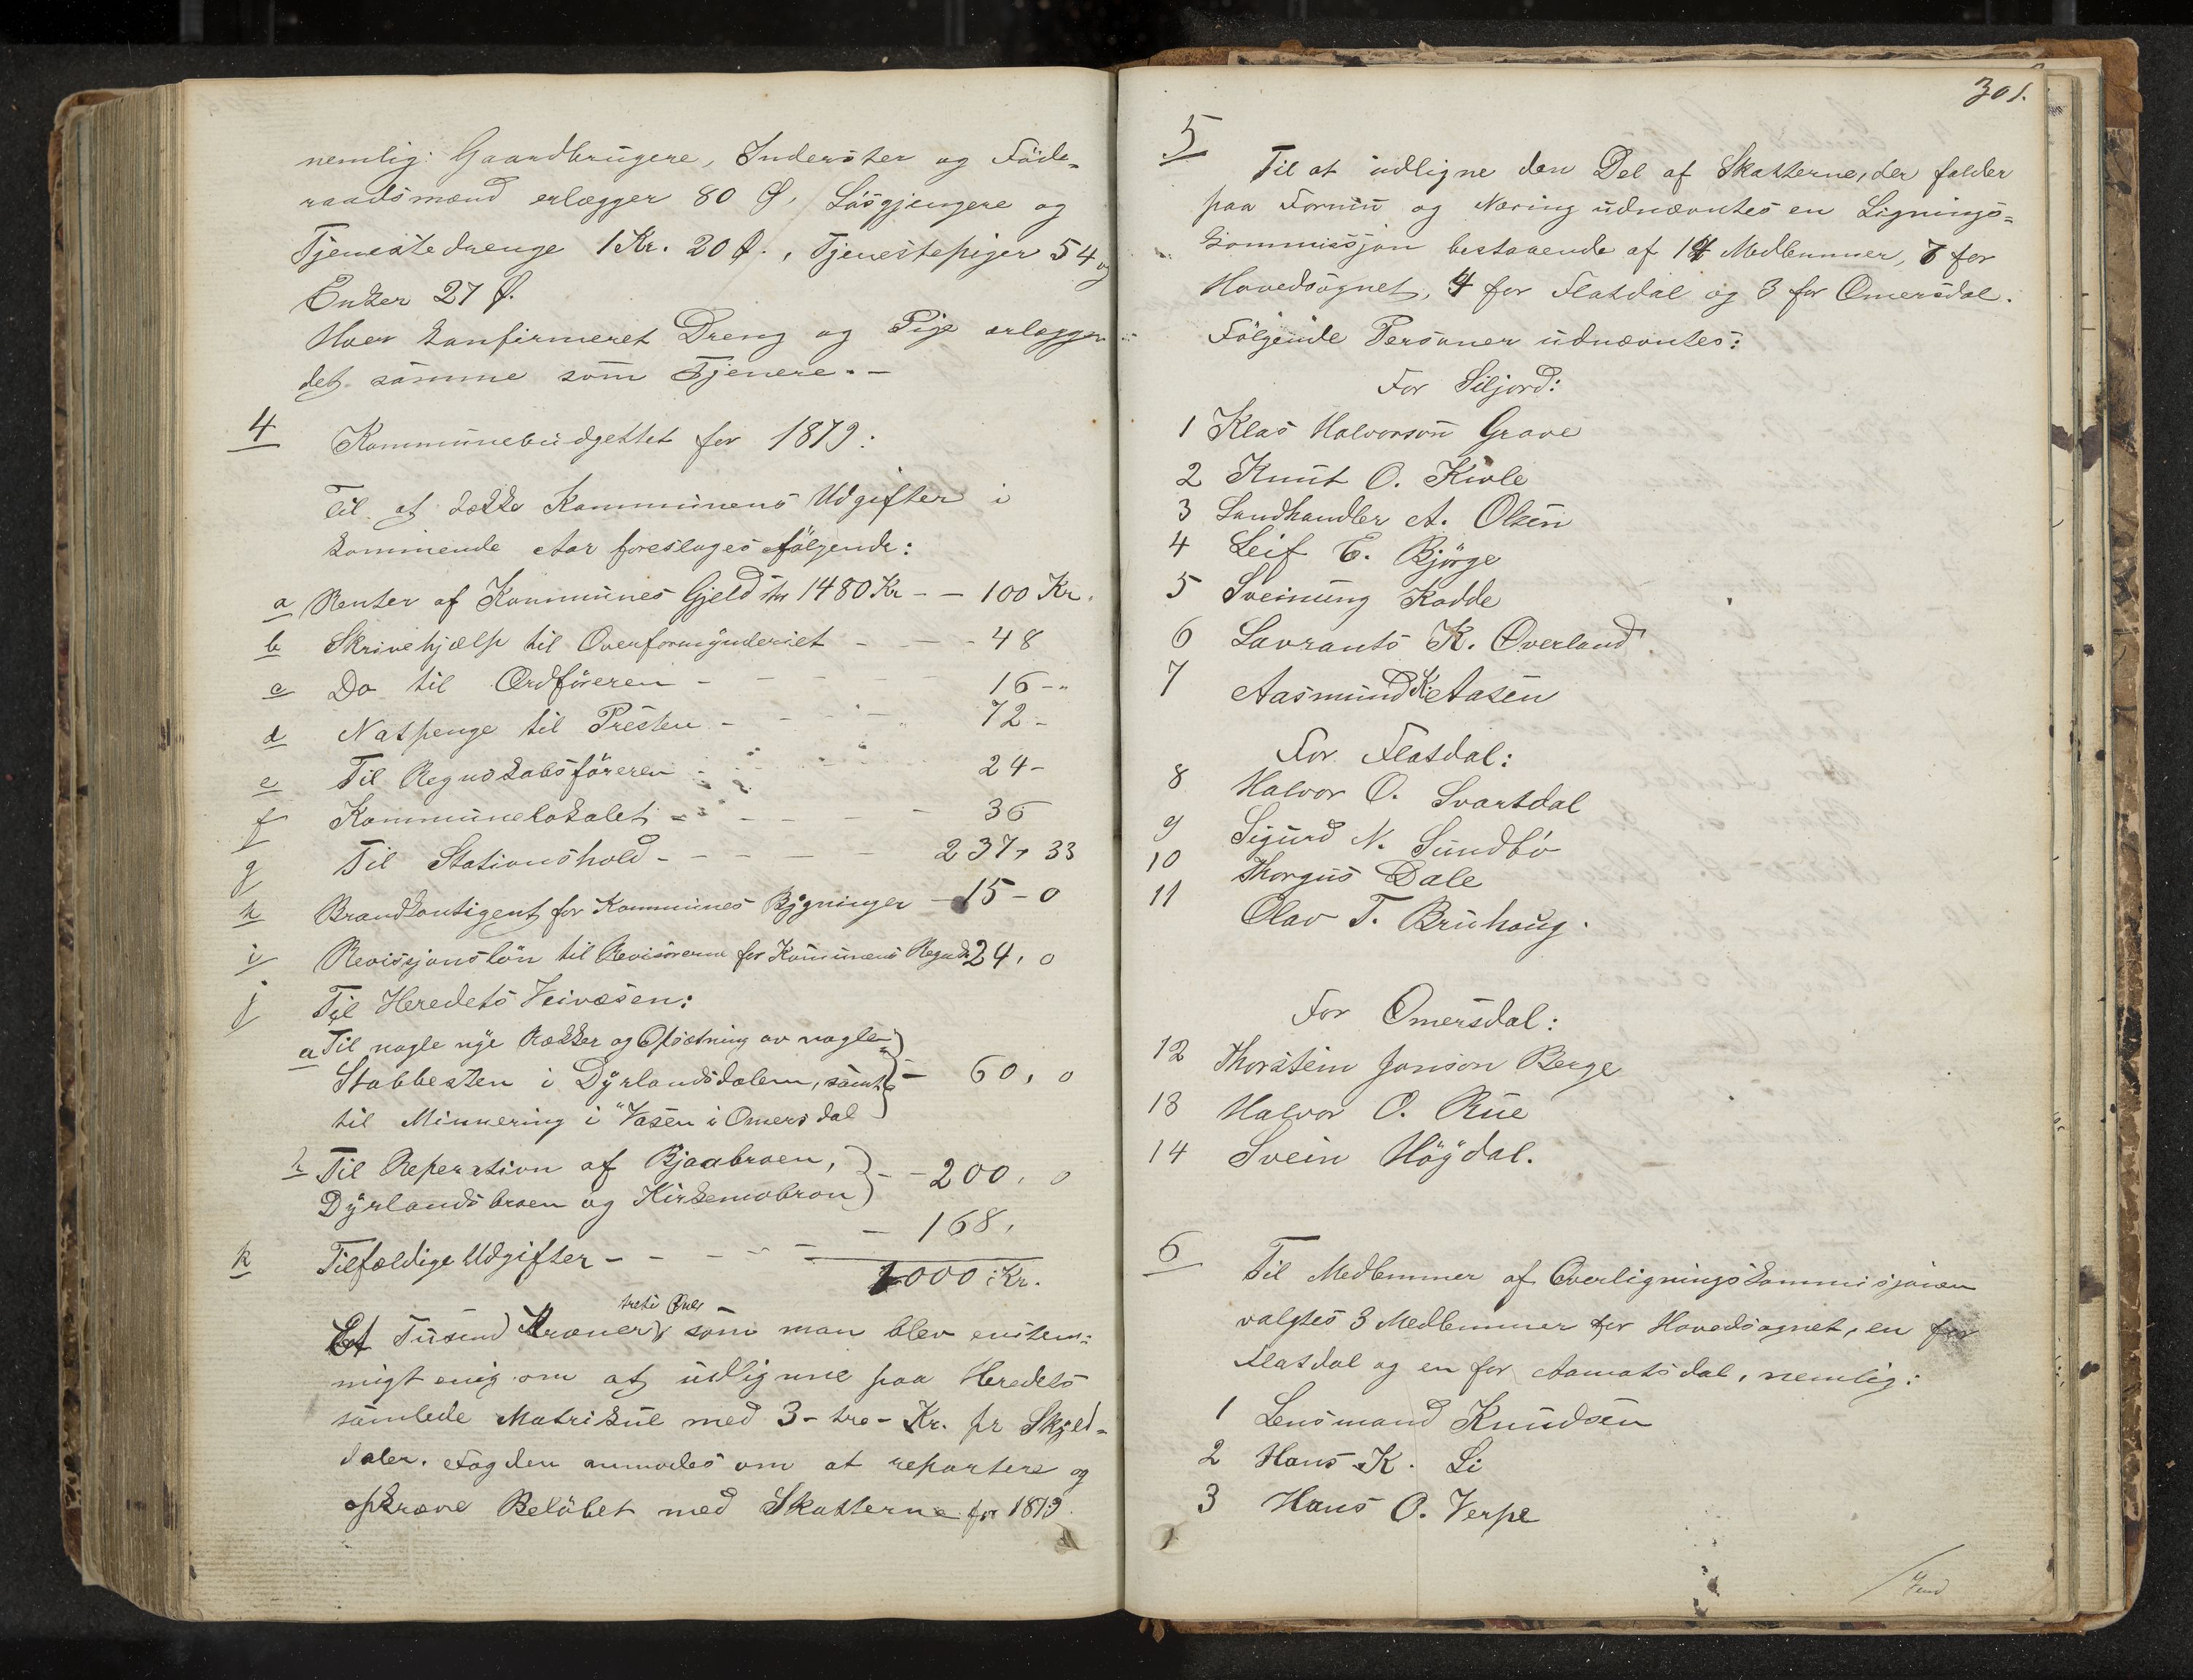 nemlig: Gaardbrugere, Inderster og Föde-
raadsmænd erlægger 80 Ø, Løsgjengere og
Tjenestedrenge 1 Kr. 20 Ø., Tjenestepiger 54 og
Enker 27 Ø.
Hver konfirmeret Dreng og Pige erlægger
det samme som Tjenere. -
4 Kommunebudgettet for 1879:
Til at dække Kommunens Udgifter i
kommende Aar foreslages følgende:
a Renter af Kommunes Gjeld 1480 Kr - - 100 Kr.
b Skrivehjælp til Overformynderiet - - - 48
c Do til Ordføreren - - - - 16 - "
d Natpenge til Presten - - - - 72 -
e Til Regnskabsføreren - - - - 24 -
f Kommunelokalet - - - - 36
g Til Stationshold - - - - - 237, 33
h Brandkontigent for Kommunes Bygninger - 15 - 0
i Revissjonsløn til Revisorerne for Kommunens Regnsk 24, 0
j Til Heredets Veivæsen:
a Til nogle nye Rækker og Opsætning av nogle
Stabbesten i Dyrlandsdalen, samt - 60, 0
til Minnering i "Vasen i Omersdal
b Til Reperation af Bjaabroen,
Dyrlandsbroen og Kirkemobron - - 200, 0
- 168,
k Tilfældige Udgifter - - - - -
1000 Kr.
treti Ører -
Et Tusend Kroner som man blev enstem-
migt enig om at udligne paa Heredets
samlede Matrikul med 3 - tre - Kr. pr Skyld-
daler. Fogden anmodes om at repartere og
opkræve Beløbet med Skatterne for 1879.
301.
5 Til at udligne den Del af Skatterne, der falder
paa Formue og Næring udnævntes en Lignings-
kommissjon bestaaende af 14 Medlemmer, 7 for
Hovedsognet, 4 for Flatdal og 3 for Omersdal.
Følgende Personer udnævntes:
For Siljord:
1 Klas Halvorson Grave
2 Knut O. Kivle
3 Landhandler A. Olsen
4 Leif E. Bjørge
5 Sveinung Kodde
6 Lavrants K. Overland
7 Aasmund K Aasen
For Flatdal:
8 Halvor O. Svartdal
9 Sigurd N. Sundbø
10 Thorgus Dale
11 Olav T. Bruhaug.
For Omersdal:
12 Thorstein Jonson Berge
13 Halvor O. Rue
14 Svein Høgdal.
6 Til Medlemmer af Overligningskommisjonen
valgtes 3 Medlemmer for Hovedsognet, en for
Flatdal og en for Aamotsdal, nemlig:
1 Lensmand Knudsen
2 Hans K. Li
3 Hans O. Verpe
/ Vend